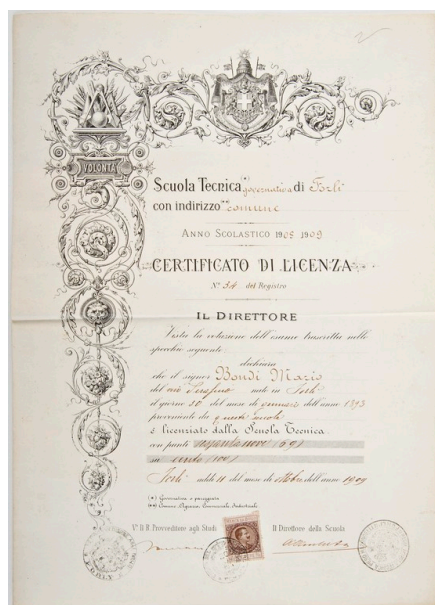 VOLONTÀ
Scuola Tecnica governativa di Forlì
con indirizzo comune
ANNO SCOLASTICO 1908 1909
CERTIFICATO DI LICENZA
N° 34 del Registro
IL DIRETTORE
Vista la votazione dell'esame trascritta nello
specchio seguente:
dichiara
che il signor Bondi Mario
del Serafino nato in Forlì
il giorno 20 del mese di gennaio dell'anno 1893
proveniente da questa scuola
è licenziato dalla Scuola Tecnica
con punti sessantanove (69)
su cento (100)
Forlì addì 11 del mese di ottobre dell'anno 1909
(*) Governativa o pareggiata
(**) Comune, Agraria, Commerciale, Industriale
V° Il R. Provveditore agli Studi
Il Direttore della Scuola